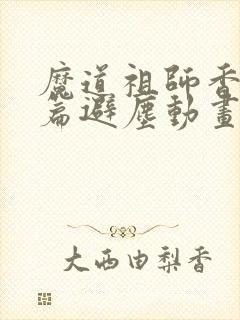 魔道祖師香
篇避塵動畫
大西由梨香